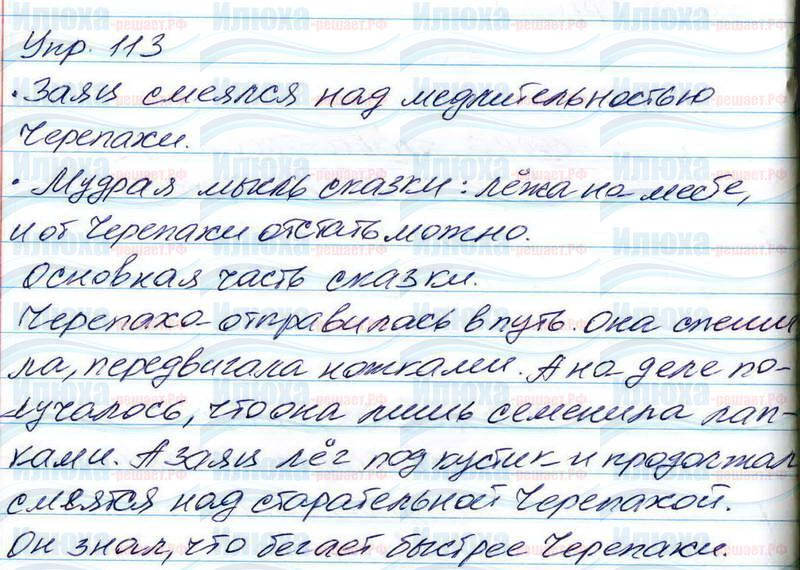 Упр. 113
• Заяц смеялся над медлительностью
Черепахи.
• Мудрая мысль сказки: лёжа на месте,
и от Черепахи отстать можно.
Основная часть сказки.
Черепаха отправилась в путь. Она спеши
ла, передвигала ножками. А на деле по-
лучалось, что она лишь семенила лап-
ками. А заяц лёг под кустик и продолжал
смеятся над старательной Черепахой.
Он знал, что бегает быстрее Черепахи.